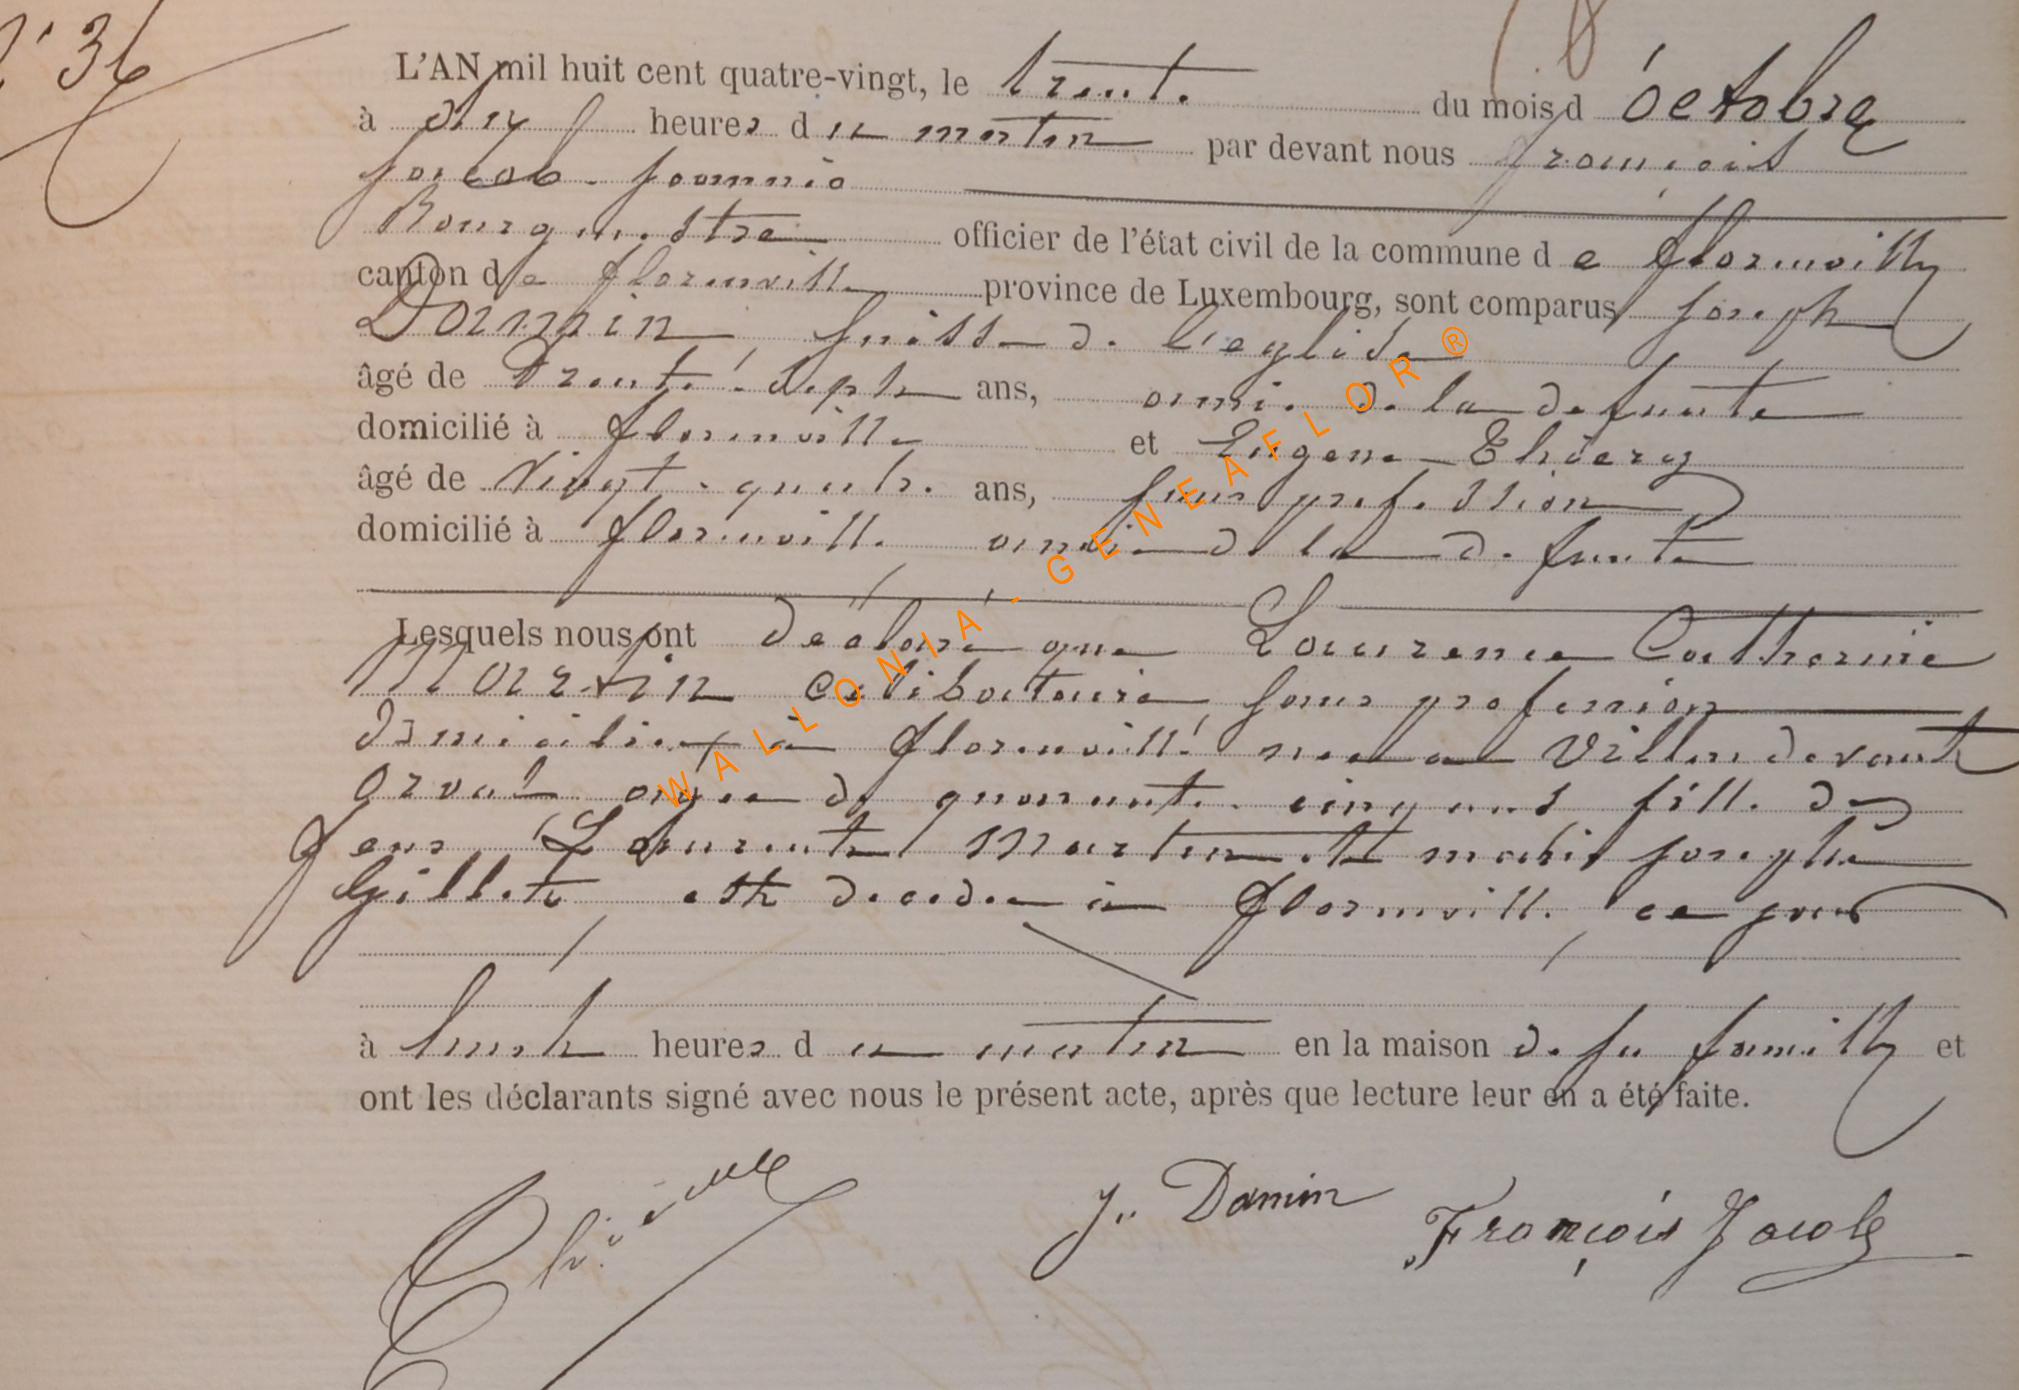 N° 36
L'AN mil huit cent quatre-vingt, le trente du mois d'octobre
à dix heures du matin par devant nous François
Jacob
Bourgmestre officier de l'état civil de la commune de florenville
canton de florenville province de Luxembourg, sont comparus Joseph
Damin, suisse de l'eglise
âgé de trente-sept ans, ami de la defunte
domicilié à florenville et Eugene Thiery
âgé de vingt-quatre ans, sans profession
domicilié à florenville ami de la defunte
Lesquels nous ont déclaré que Laurence Catherine
Martin célibataire, sans profession
domiciliée à florenville née a Villers devant
orval agée de quarante-cinq ans fille de
feus Laurent Martin et marie josephe
Gillet, est decedee à florenville, ce jour
à huit heures du matin en la maison de sa famille et
ont les déclarants signé avec nous le présent acte, après que lecture leur en a été faite.
J. Damin François Jacob
WALLONIA - GENEAFLOR ®